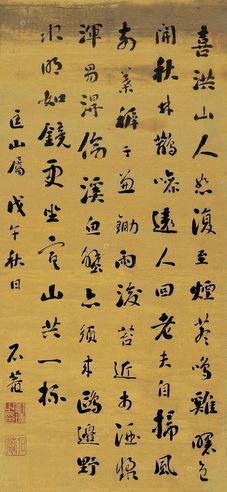 喜洪山人復至煙鳴雞曙色
開秋林鵲噪遠人回老夫自掃風
前葉稚子兼鋤雨後苔近市酒漿
渾易得傍溪魚蟹亦須來鷗邊野
水明如鏡更坐空山共一杯
匡山屬 戊午秋日
石菴